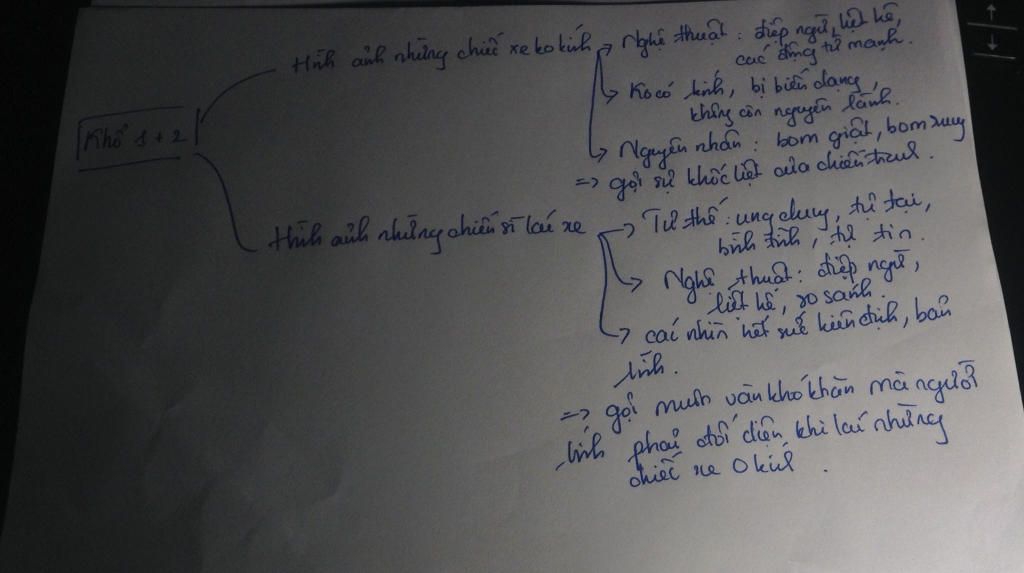 Khổ 1 + 2
Hình ảnh những chiếc xe ko kính
Nghệ thuật : điệp ngữ, liệt kê,
các động từ mạnh.
Ko có kính, bị biến dạng,
không còn nguyên lành.
Nguyên nhân : bom giật, bom rung
=> gợi sự khốc liệt của chiến trường.
Hình ảnh những chiến sĩ lái xe
Tư thế : ung dung, tự tại,
bình tĩnh, tự tin.
Nghệ thuật : điệp ngữ,
liệt kê, so sánh.
cái nhìn hết sức kiên định, bản
lĩnh.
=> gợi muôn vàn khó khăn mà người
lính phải đối diện khi lái những
chiếc xe 0 kính.